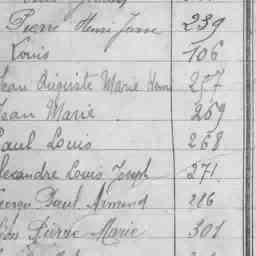 Pierre Henri Jean 239
Louis 106
Jean Auguste Marie Henri 257
Jean Marie 259
Paul Louis 268
Alexandre Louis Joseph 271
Georges Paul Armand 286
Pierre Marie 301